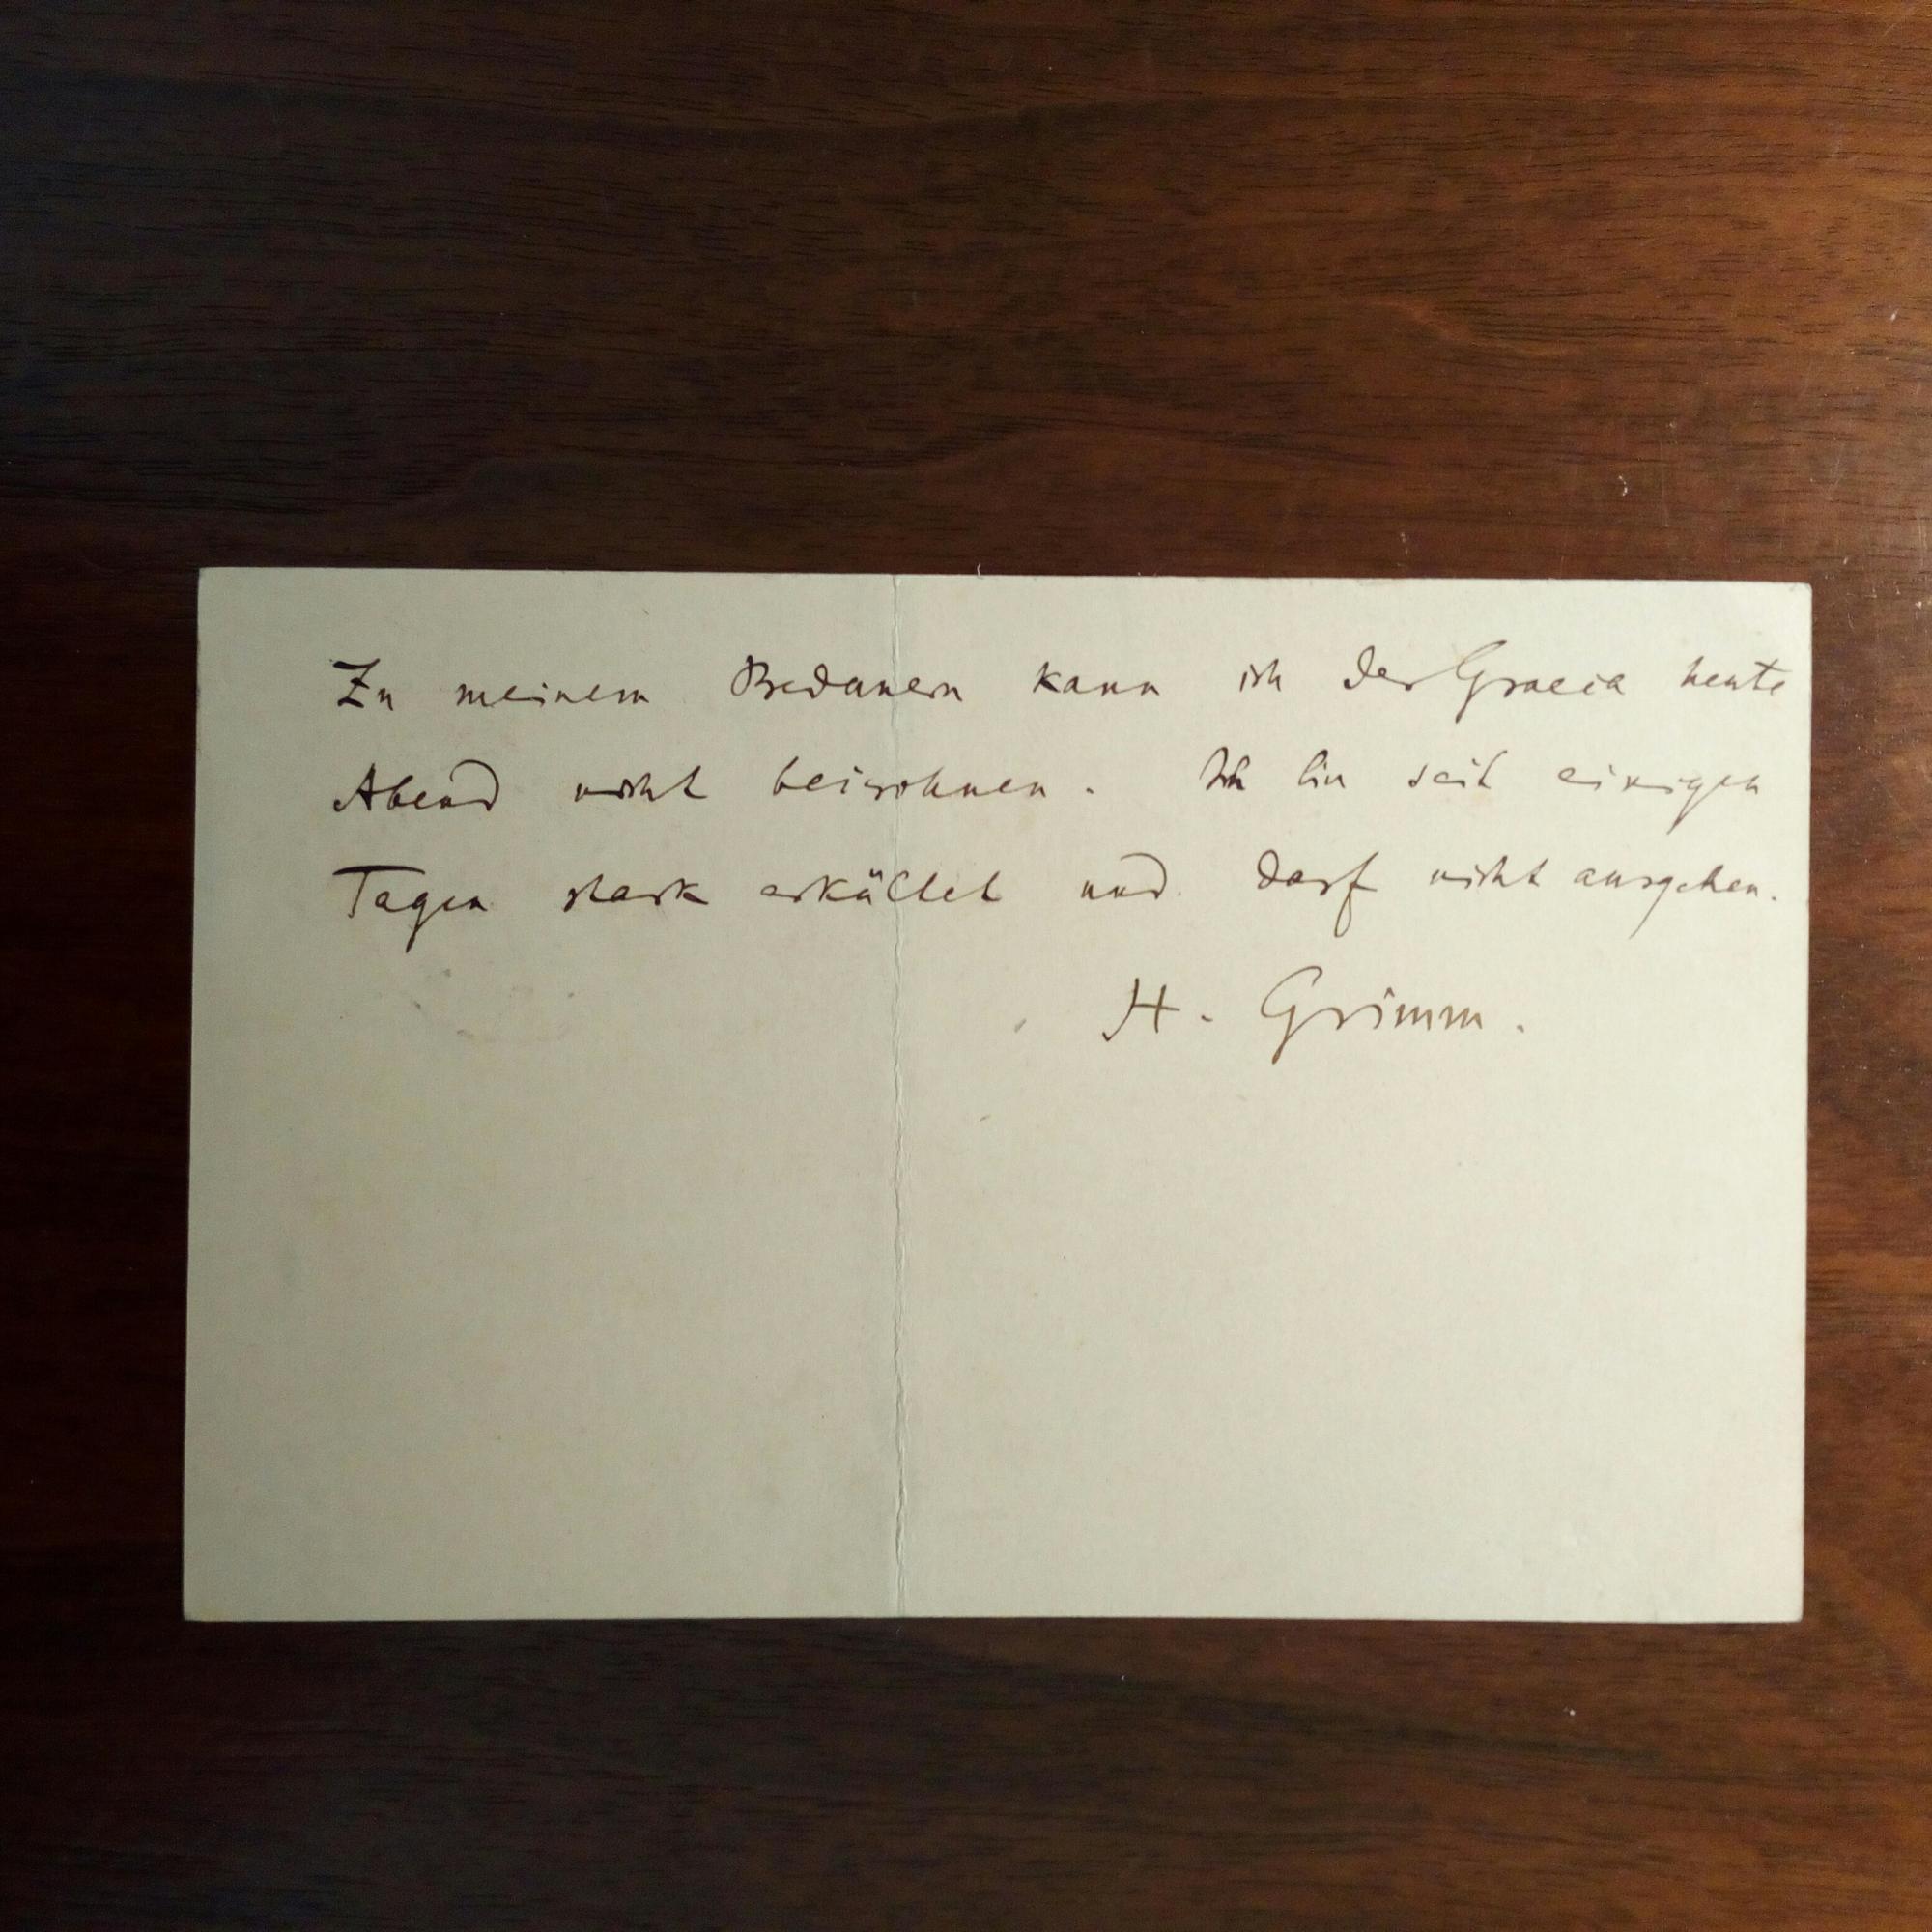 Zu meinem Bedauern kann ich der Graeca heute
Abend nicht beiwohnen. Ich bin seit einigen
Tagen stark erkältet und darf nicht ausgehen.
H. Grimm.